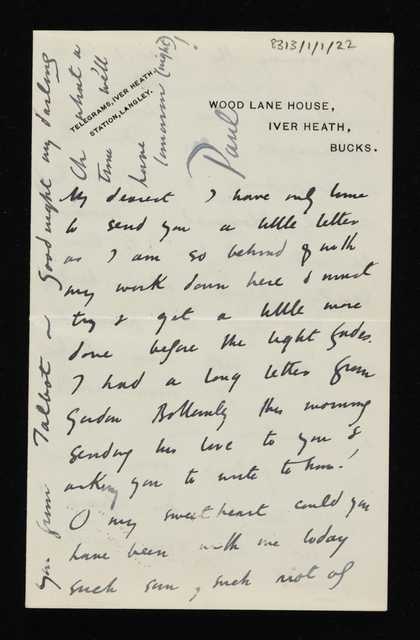 8313/1/1/22
TELEGRAMS, IVER HEATH,
STATION, LANGLEY.
WOOD LANE HOUSE,
IVER HEATH,
BUCKS.
My dearest I have only time
to send you a little letter
as I am so behind with
my work down here & must
try & get a little more
done before the light fades.
I had a long letter from
Gordon Bottomly this morning
sending his love to you &
asking you to write to him!
O my sweetheart could you
have been with me today
such sun, such riot of
you from Talbot ~ Goodnight my darling
Oh what a
time we'll
have
tomorrow (night)!
Paul